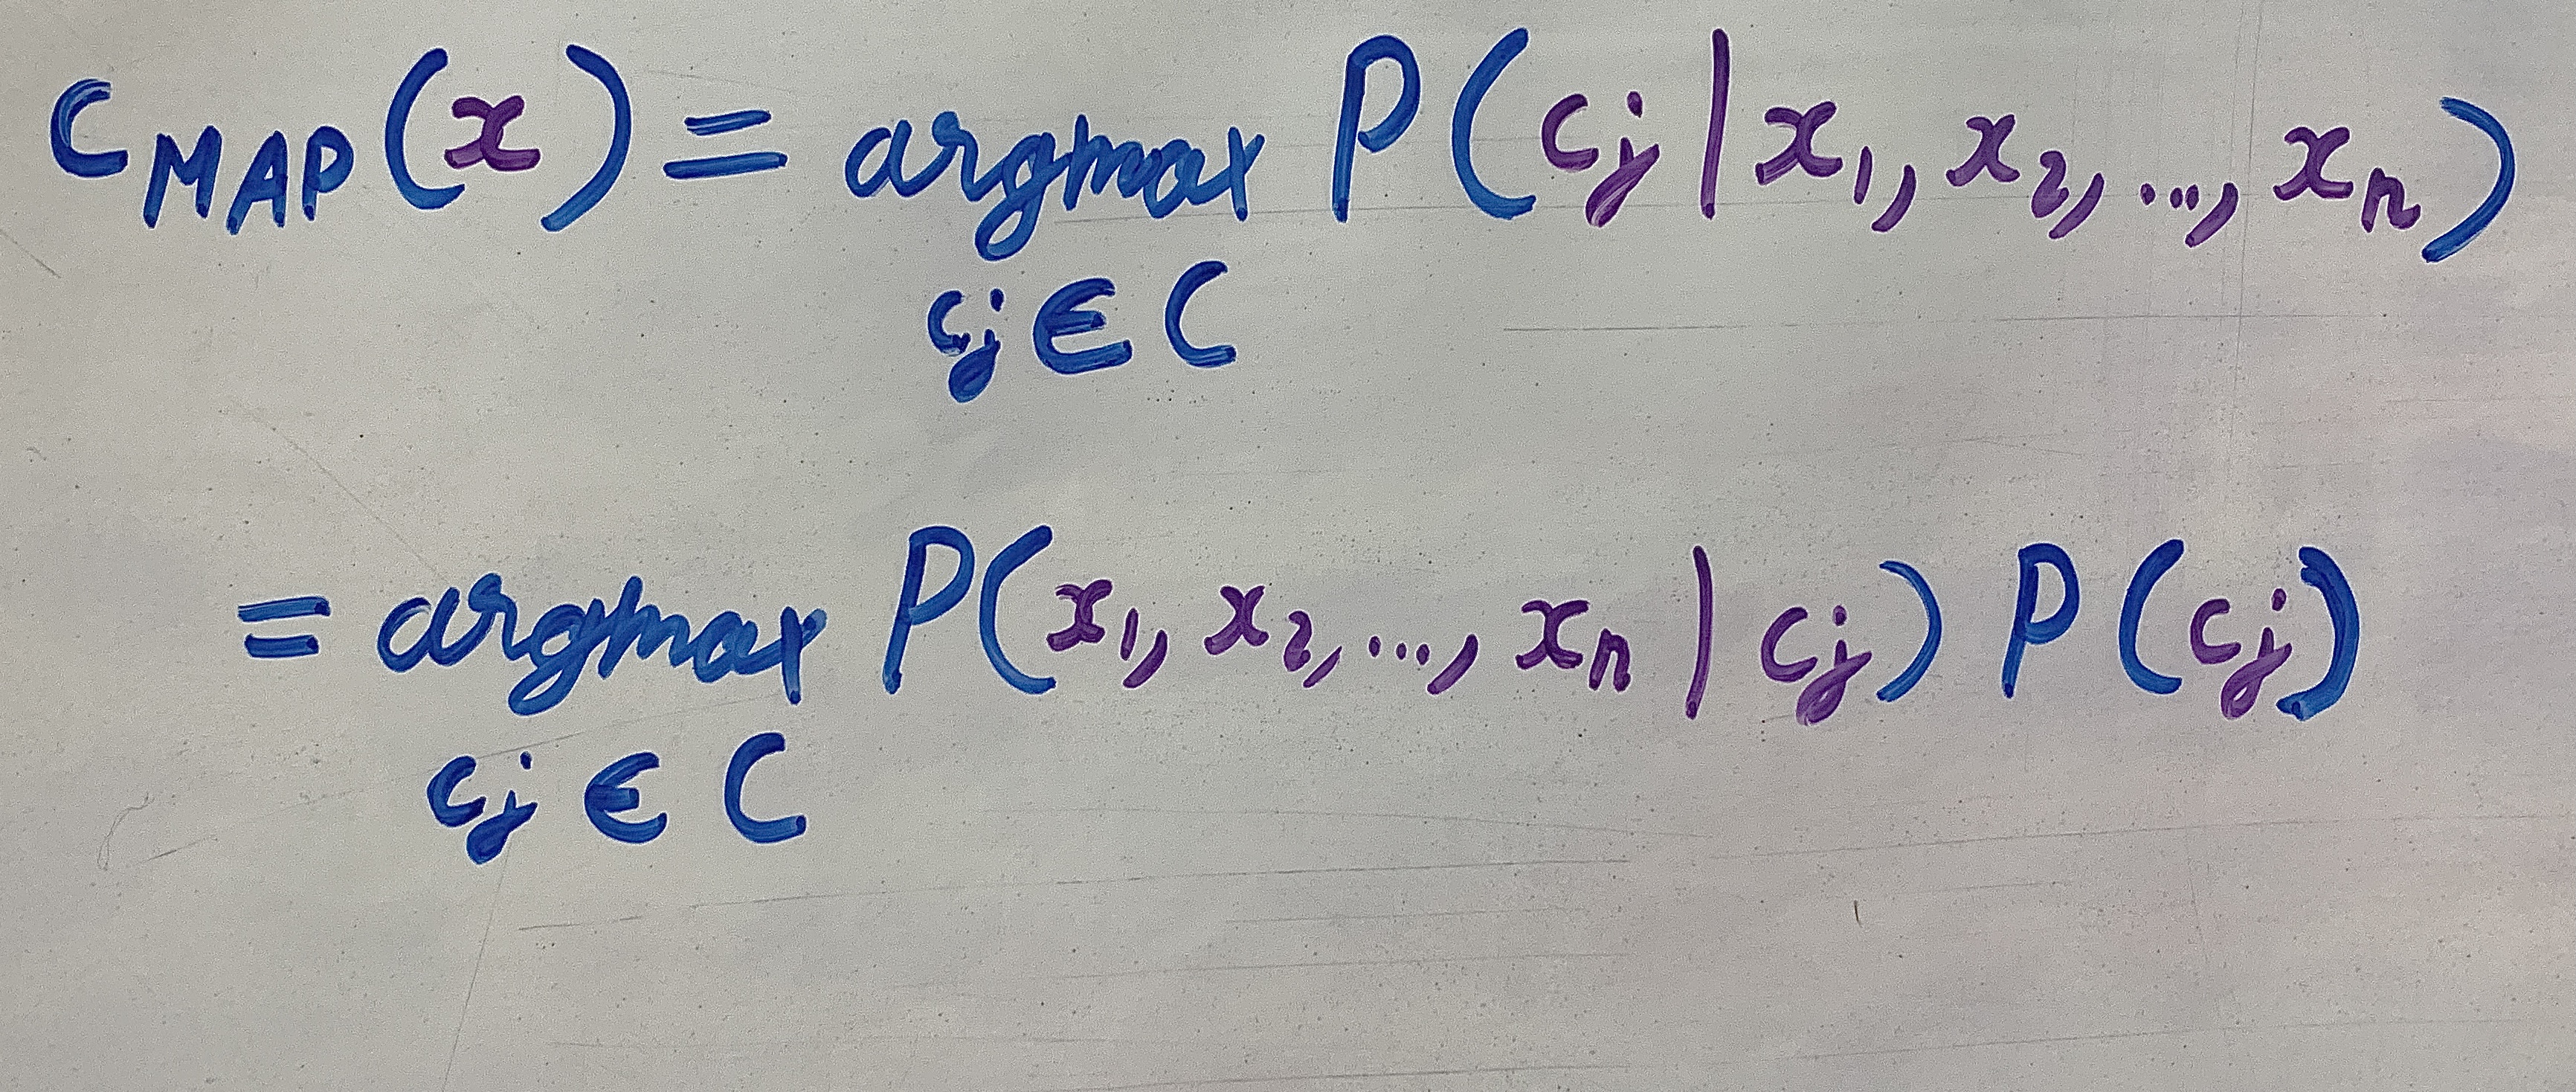 c_MAP(x) = argmax P(c_j | x_1, x_2, ..., x_n)
c_j ∈ C
= argmax P(x_1, x_2, ..., x_n | c_j) P(c_j)
c_j ∈ C